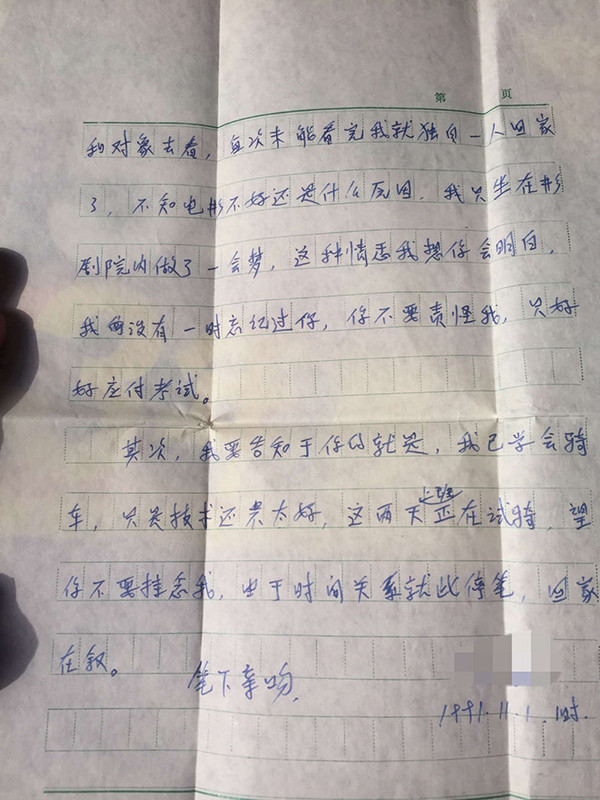 第 页
和对象去看，每次未能看完我就独自一人回家
了，不知电影不好还是什么原因，我只坐在影
剧院内做了一会梦，这种情态我想你会明白，
我再没有一时忘记过你，你不要责怪我，只好
好应付考试。
其次，我要告知于你的就是，我已学会骑
车，只是技术还是太好，这两天正在试骑，望
你不要挂念我，由于时间关系就此停笔，回家
在叙。
笔下亲吻，
1991.11.1.